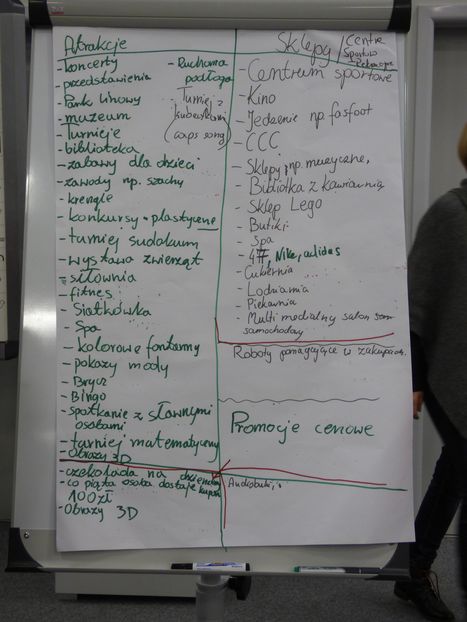 Atrakcje
- koncerty
- przedstawienia
- Park linowy
- muzeum
- Turnieje
- biblioteka
- zabawy dla dzieci
- zawody np. szachy
- kręgle
- konkursy • plastyczne
- turniej sudokum
- wystawa zwierząt
- siłownia
- fitnes
- Siatkówka
- Spa
- kolorowe fontanny
- pokazy mody
- Brycz
- Bingo
- spotkanie z sławnymi
osobami
- turniej matematyczny
- Obrazy 3D
- czekolada na
- co piąta osoba dostaje kupon
100 zł
- Obrazy 3D
- Ruchoma
podłoga
Turniej z
kubeczkami
(caps song)
Sklepy / Centra
Sportowo
- Centrum sportowe
- Kino
- Jedzenie np fasfoot
- CCC
- Sklepy np. muzyczne,
- Bibliotka z kawiarnią
- Sklep Lego
- Butiki
- Spa
- 4F, Nike, adidas
- Cukiernia
- Lodziarnia
- Piekarnia
- Multi medialny salon
samochodowy
Roboty pomagające w zakupach.
Promocje cenowe
Audiobuki